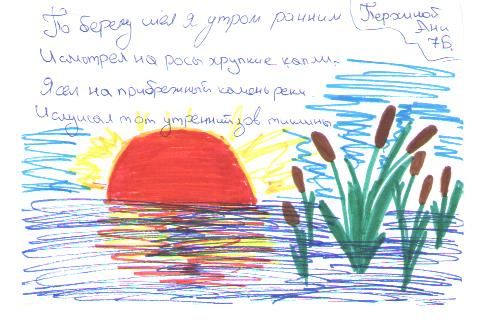 По берегу шёл я утром ранним
И смотрел на росы хрупкие капли.
Я сел на прибрежный камень реки.
И слушал тот утренний зов тишины
Першиной
Ани
7Б.